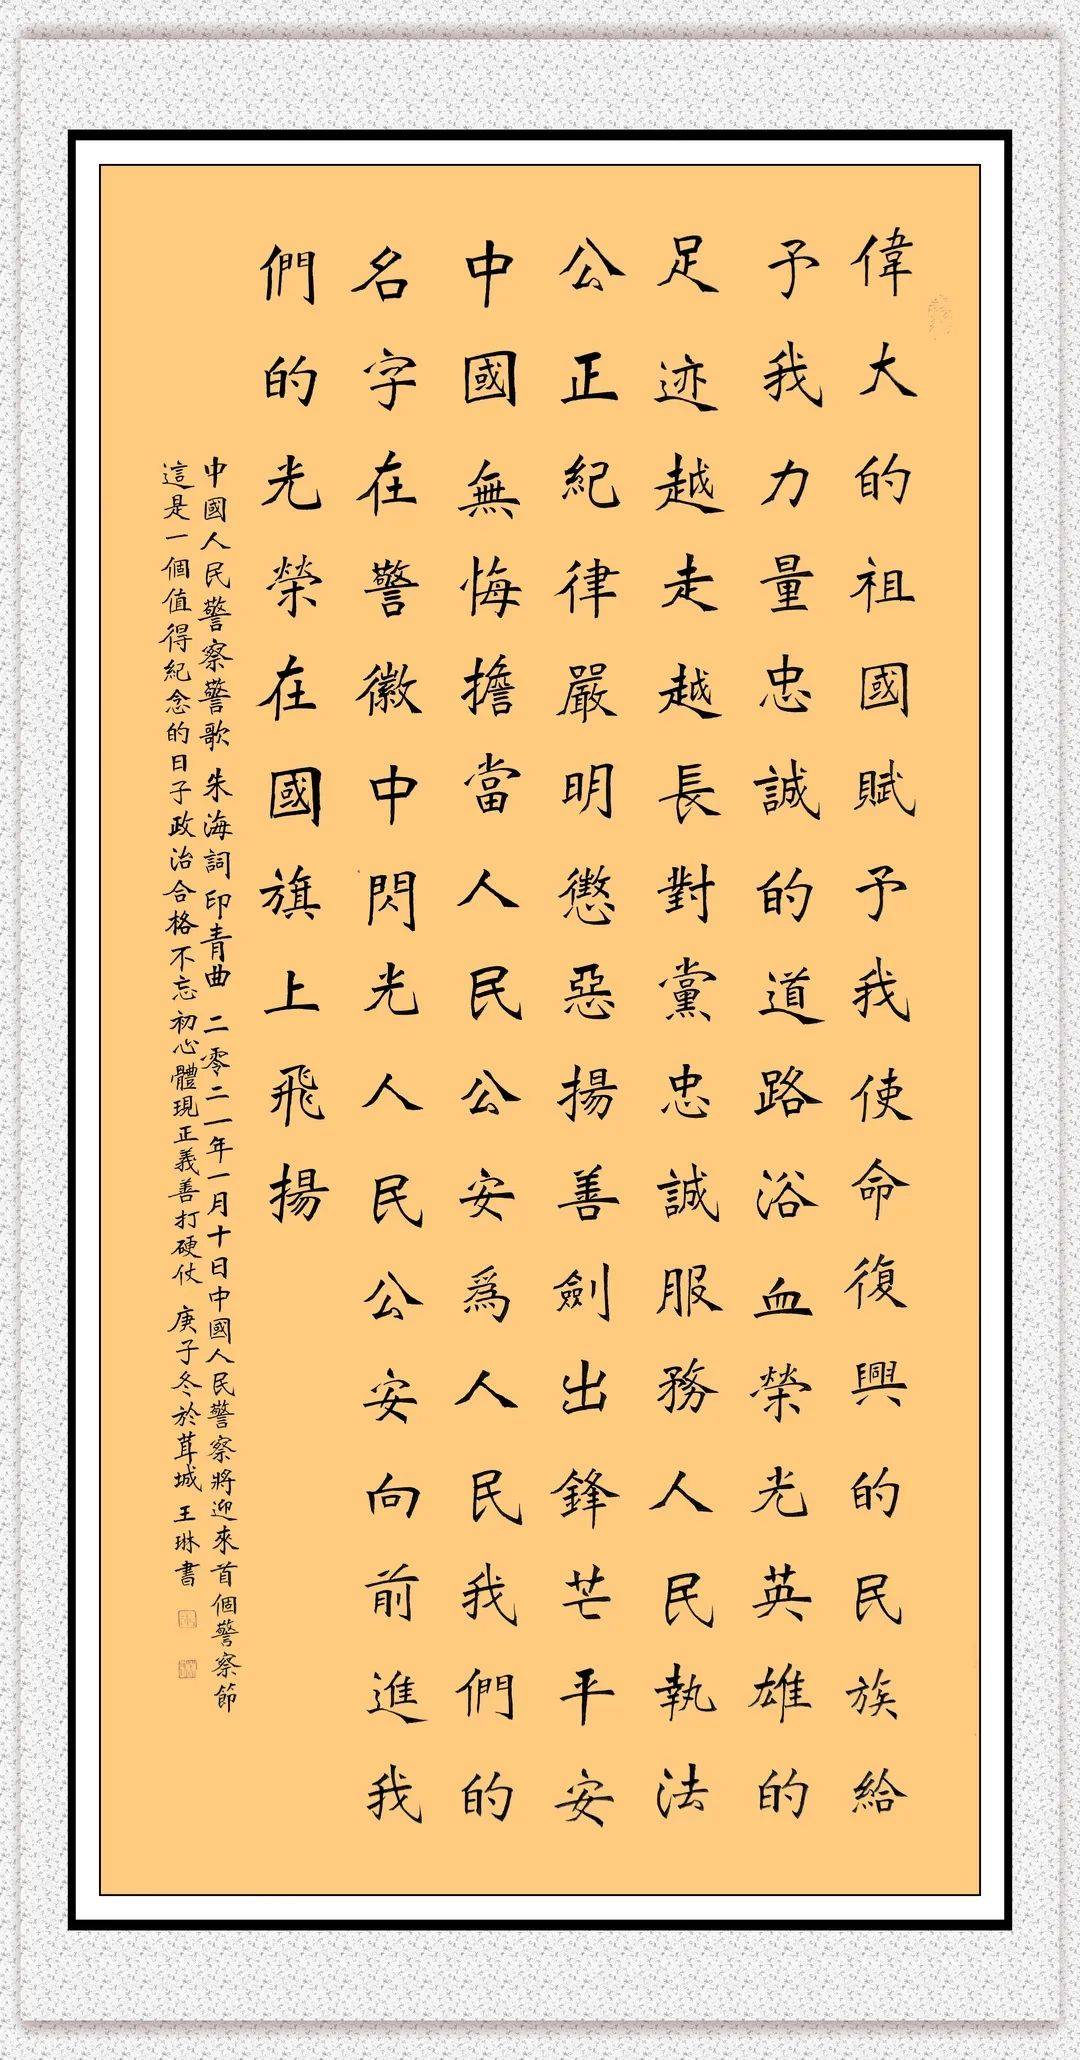 偉大的祖國賦予我使命復興的民族給
予我力量忠誠的道路浴血榮光英雄的
足迹越走越長對黨忠誠服務人民執法
公正紀律嚴明懲惡揚善劍出鋒芒平安
中國無悔擔當人民公安爲人民我們的
名字在警徽中閃光人民公安向前進我
們的光榮在國旗上飛揚
中國人民警察警歌 朱海詞印青曲 二零二一年一月十日中國人民警察將迎來首個警察節
這是一個值得紀念的日子政治合格不忘初心體現正義善打硬仗 庚子冬於茸城王琳書